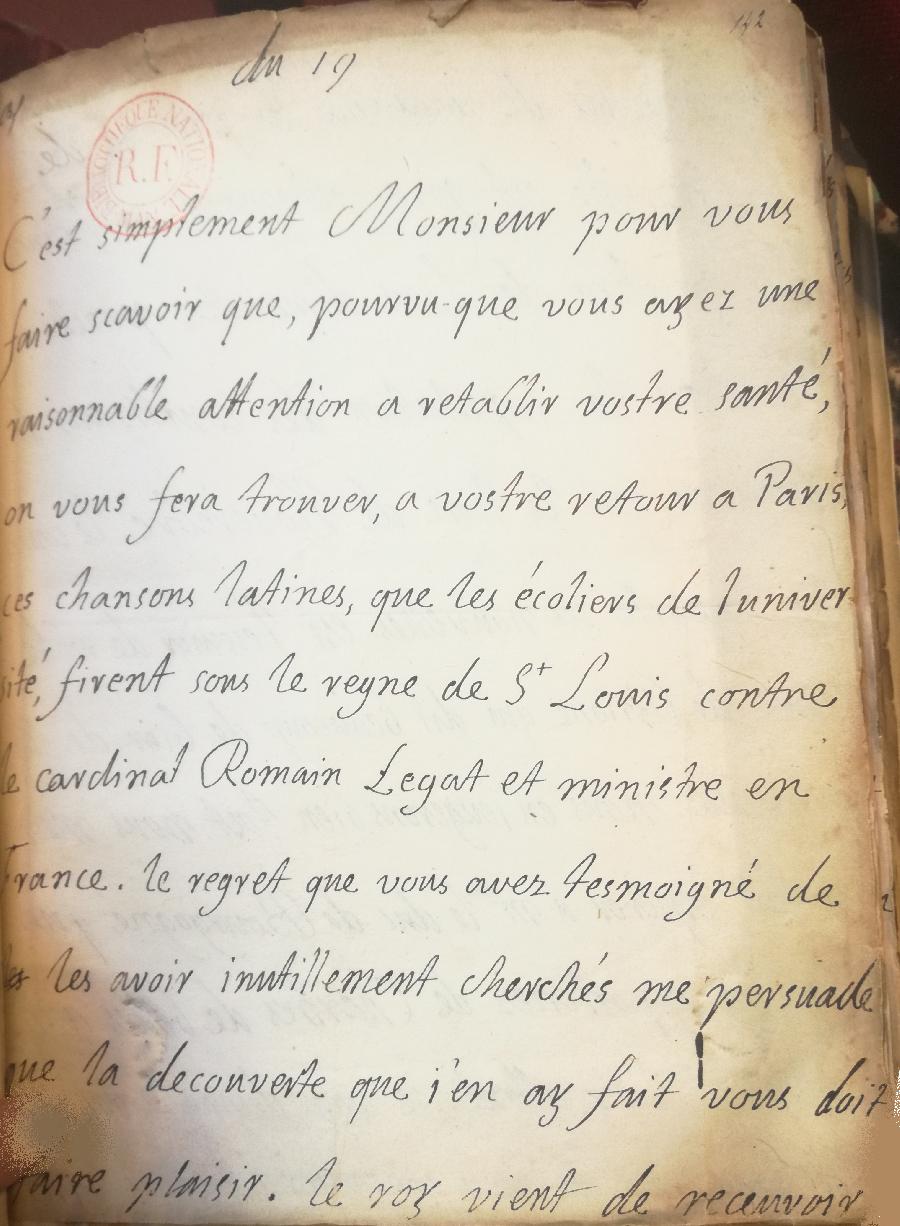 142
du 19
BIBLIOTHEQUE NATIONALE
R.F.
C'est simplement Monsieur pour vous
faire scavoir que, pourvu-que vous ayez une
raisonnable attention a retablir vostre santé,
on vous fera trouver, a vostre retour a Paris,
ces chansons latines, que les écoliers de luniver
sité, firent sous le regne de St Louis contre
le cardinal Romain Legat et ministre en
France. le regret que vous avez tesmoigné de
les avoir inutillement cherchés me persuade
que la decouverte que i'en ay fait vous doit
faire plaisir. le roy vient de receuvoir